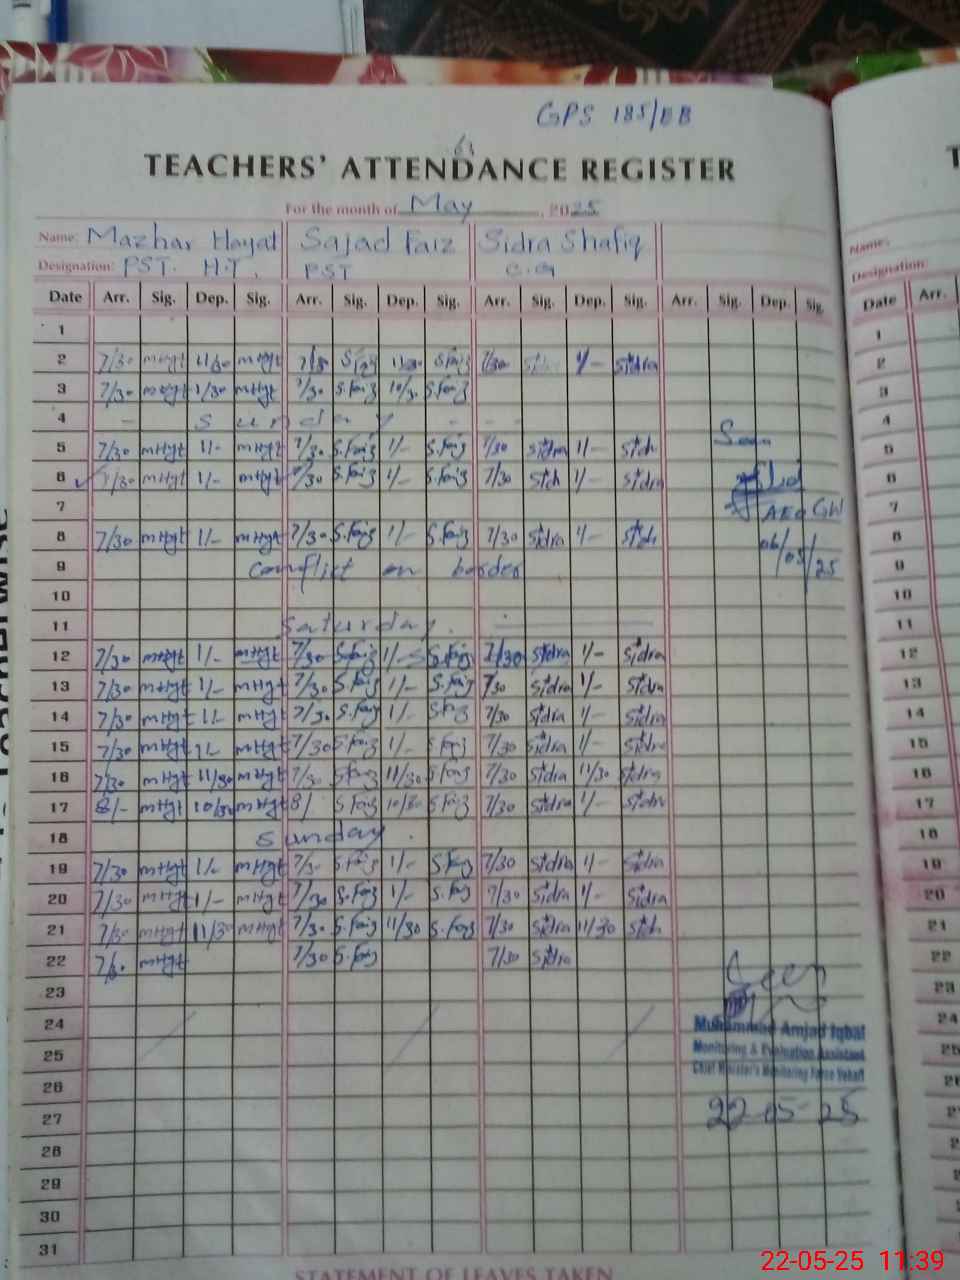 GPS 185/EB
63
TEACHERS' ATTENDANCE REGISTER
For the month of May, 2025
Name: Mazhar Hayat Sajad Faiz Sidra Shafiq
Designation: PST. H.T. PST C.G
Date Arr. Sig. Dep. Sig. Arr. Sig. Dep. Sig. Arr. Sig. Dep. Sig. Arr. Sig. Dep. Sig.
1
2 7/30 mHyt 11/30 mHyt 7/30 S.Faiz 11/30 S.Faiz 7/30 Sidra 1/- Sidra
3 7/30 mHyt 1/30 mHyt 7/30 S.Faiz 10/30 S.Faiz
4 - Sunday - - -
5 7/30 mHyt 1/- mHyt 7/30 S.Faiz 1/- S.Faiz 7/30 Sidra 1/- Sidra
6 7/30 mHyt 1/- mHyt 7/30 S.Faiz 1/- S.Faiz 7/30 Sidra 1/- Sidra
7 AEO GW
8 7/30 mHyt 1/- mHyt 7/30 S.Faiz 1/- S.Faiz 7/30 Sidra 1/- Sidra 06/05/25
9 conflict on border
10
11 Saturday.
12 7/30 mHyt 1/- mHyt 7/30 S.Faiz 1/- S.Faiz 7/30 Sidra 1/- Sidra
13 7/30 mHyt 1/- mHyt 7/30 S.Faiz 1/- S.Faiz 7/30 Sidra 1/- Sidra
14 7/30 mHyt 1/- mHyt 7/30 S.Faiz 1/- S.Faiz 7/30 Sidra 1/- Sidra
15 7/30 mHyt 1/- mHyt 7/30 S.Faiz 1/- S.Faiz 7/30 Sidra 1/- Sidra
16 7/30 mHyt 11/30 mHyt 7/30 S.Faiz 11/30 S.Faiz 7/30 Sidra 11/30 Sidra
17 8/- mHyt 10/30 mHyt 8/ S.Faiz 10/30 S.Faiz 7/30 Sidra 1/- Sidra
18 Sunday.
19 7/30 mHyt 1/- mHyt 7/30 S.Faiz 1/- S.Faiz 7/30 Sidra 1/- Sidra
20 7/30 mHyt 1/- mHyt 7/30 S.Faiz 1/- S.Faiz 7/30 Sidra 1/- Sidra
21 7/30 mHyt 11/30 mHyt 7/30 S.Faiz 11/30 S.Faiz 7/30 Sidra 11/30 Sidra
22 mHyt 7/30 S.Faiz 7/30 Sidra
23 Seen
24
Muhammad Amjad Iqbal
25 Monitoring & Evaluation Assistant
Chief Minister's Monitoring Force Vehari
26
27 22-05-25
28
29
30
31
STATEMENT OF LEAVES TAKEN
T
Name:
Designation:
Date Arr.
1
2
3
4
5
6
7
8
9
10
11
12
13
14
15
16
17
18
19
20
21
22
23
24
25
26
22-05-25 11:39